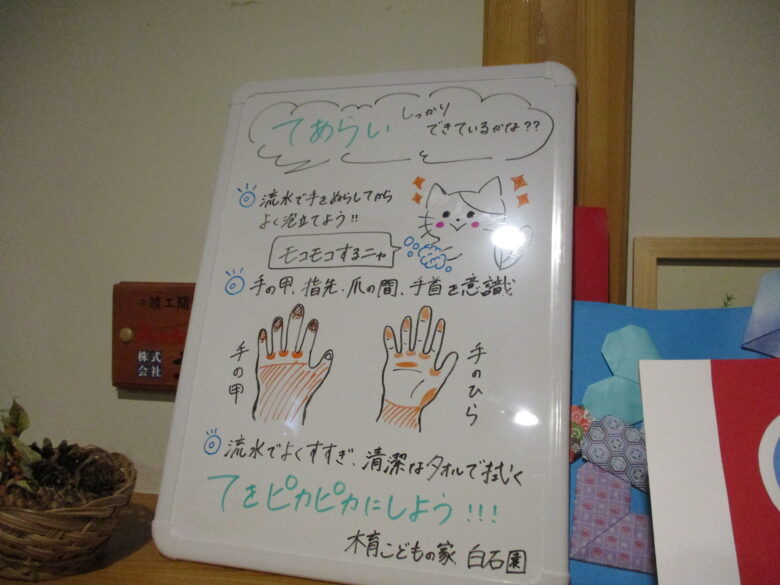 てあらい しっかり
できているかな??
流水で手をぬらしてから
よく泡立てよう!!
モコモコするニャ
手の甲、指先・爪の間、手首を意識
手の甲
手のひら
流水でよくすすぎ、清潔なタオルで拭く
てをピカピカにしよう!!!
木育こどもの家 白石園
竣工
株式
会社